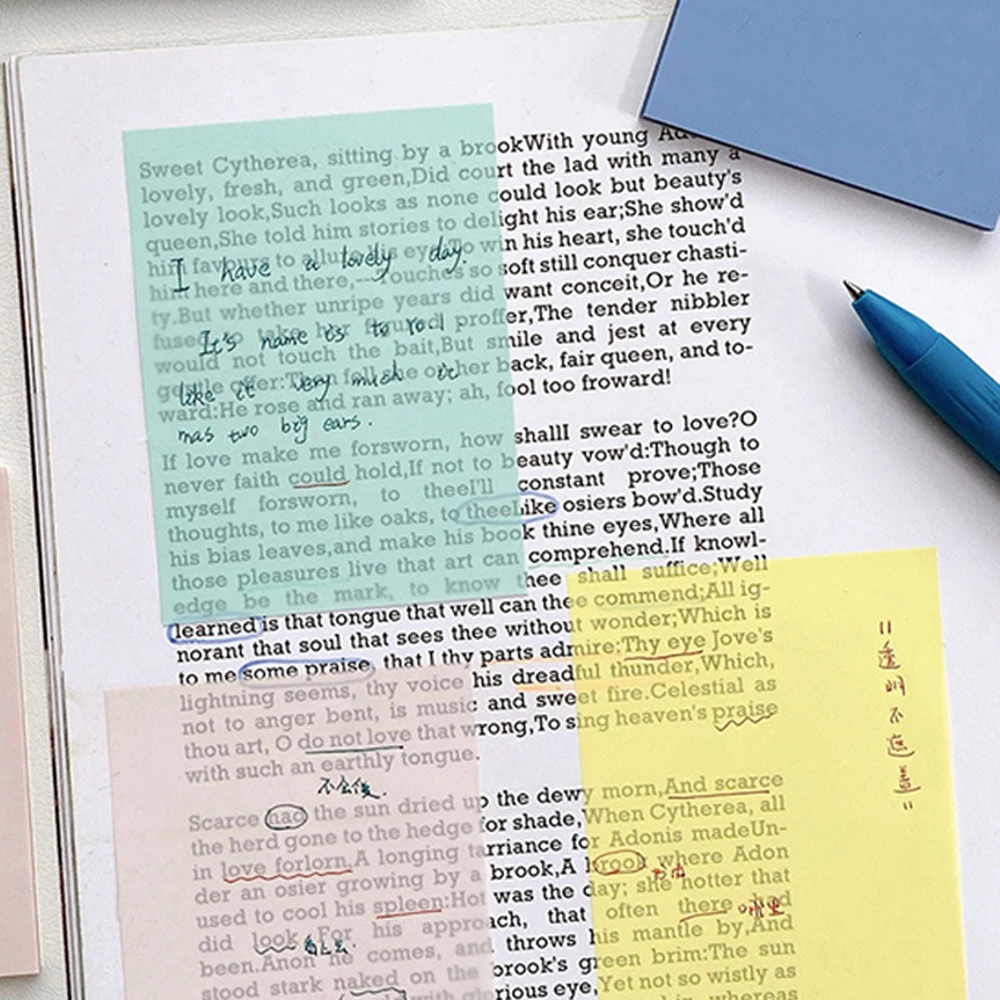 Sweet Cytherea, sitting by a brookWith young
lovely, fresh, and green,Did court the lad with many a
lovely look,Such looks as none could look but beauty's
queen,She told him stories to delight his ear;She show'd
him favours to allure his eye;To win his heart, she touch'd
I have a lovely day.
him here and there,--Touches so soft still conquer chasti-
ty.But whether unripe years did want conceit,Or he re-
fused to take her figured proffer,The tender nibbler
It's name is to rool
would not touch the bait,But smile and jest at every
gentle offer:Then fell she on her back, fair queen, and to-
like it very much it
ward:He rose and ran away; ah, fool too froward!
mas two big ears.
If love make me forsworn, how shallI swear to love?O
never faith could hold,If not to beauty vow'd:Though to
myself forsworn, to theeI'll constant prove;Those
thoughts, to me like oaks, to theeLike osiers bow'd.Study
his bias leaves,and make his book thine eyes,Where all
those pleasures live that art can comprehend.If knowl-
edge be the mark, to know thee shall suffice;Well
learned is that tongue that well can thee commend;All ig-
norant that soul that sees thee without wonder;Which is
to me some praise, that I thy parts admire:Thy eye Jove's
lightning seems, thy voice his dreadful thunder,Which,
not to anger bent, is music and sweet fire.Celestial as
thou art, O do not love that wrong,To sing heaven's praise
with such an earthly tongue.
Scarce had the sun dried up the dewy morn,And scarce
the herd gone to the hedge for shade,When Cytherea, all
in love forlorn,A longing tarriance for Adonis madeUn-
der an osier growing by a brook,A brook where Adon
used to cool his spleen:Hot was the day; she hotter that
did look For his approach, that often there had
哪里
been.Anon he comes, and throws his mantle by,And
stood stark naked on the brook's green brim:The sun
with glorious eye,Yet not so wistly as
whereas